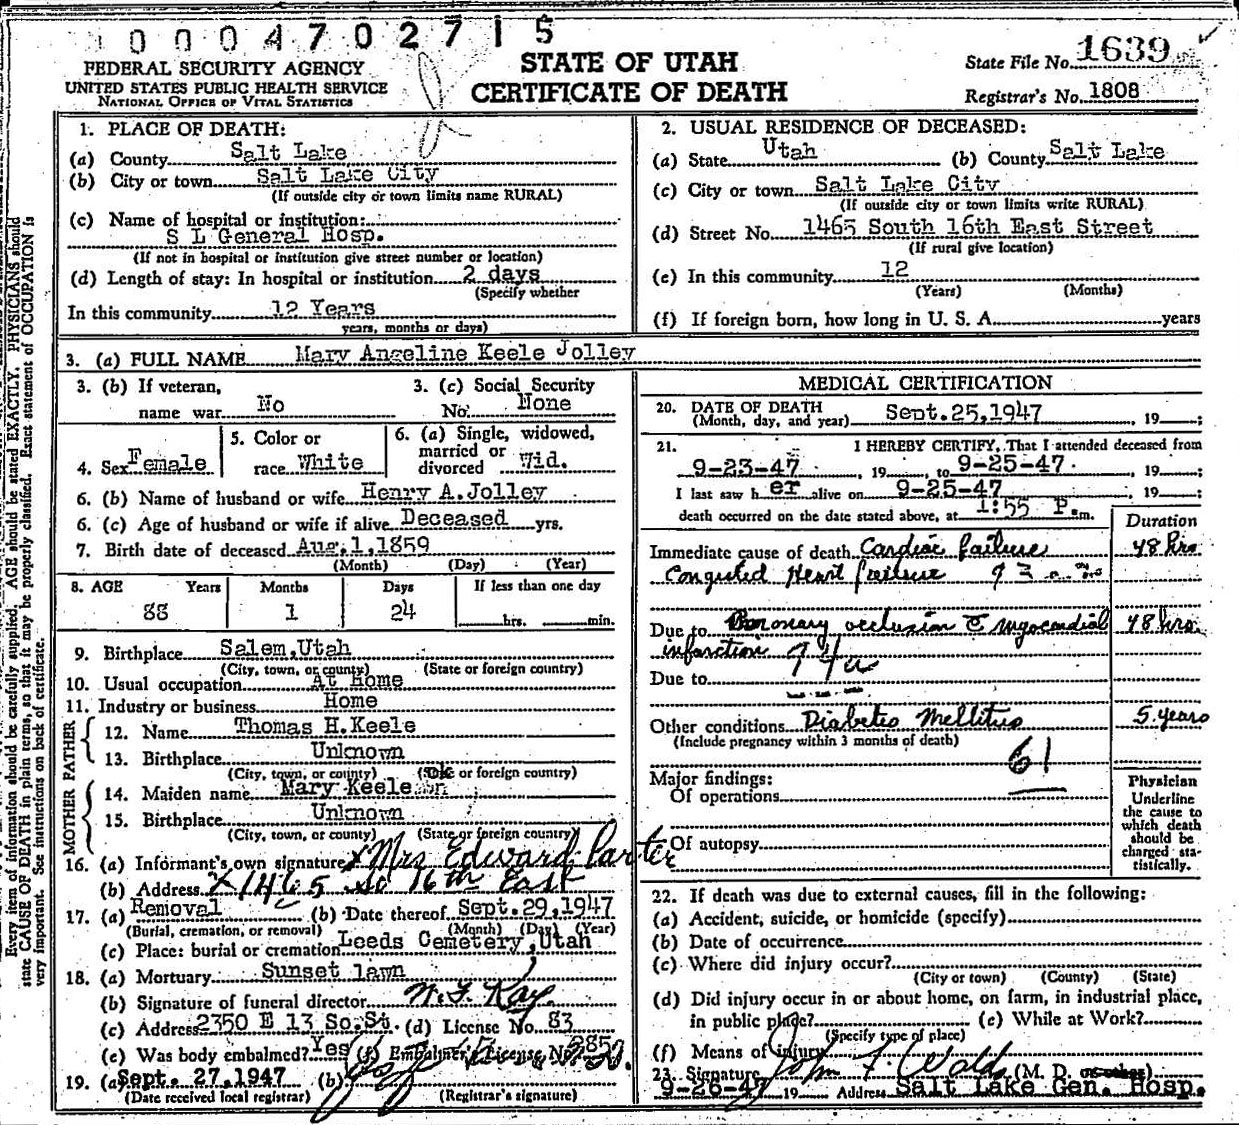 0004702715
FEDERAL SECURITY AGENCY
UNITED STATES PUBLIC HEALTH SERVICE
NATIONAL OFFICE OF VITAL STATISTICS
STATE OF UTAH
CERTIFICATE OF DEATH
State File No. 1639
Registrar's No. 1808
1. PLACE OF DEATH:
(a) County Salt Lake
(b) City or town Salt Lake City
(If outside city or town limits name RURAL)
(c) Name of hospital or institution:
S L General Hosp.
(If not in hospital or institution give street number or location)
(d) Length of stay: In hospital or institution 2 days
(Specify whether
In this community 12 Years
years, months or days)
2. USUAL RESIDENCE OF DECEASED:
(a) State Utah (b) County Salt Lake
(c) City or town Salt Lake City
(If outside city or town limits write RURAL)
(d) Street No. 1465 South 16th East Street
(If rural give location)
(e) In this community 12
(Years) (Months)
(f) If foreign born, how long in U. S. A. years
3. (a) FULL NAME Mary Angeline Keele Jolley
3. (b) If veteran,
name war No
3. (c) Social Security
No. None
4. Sex Female
5. Color or
race White
6. (a) Single, widowed,
married or
divorced Wid.
6. (b) Name of husband or wife Henry A.Jolley
6. (c) Age of husband or wife if alive Deceased yrs.
7. Birth date of deceased Aug.1,1859
(Month) (Day) (Year)
8. AGE Years Months Days If less than one day
88 1 24 hrs. min.
9. Birthplace Salem,Utah
(City, town, or county) (State or foreign country)
10. Usual occupation At Home
11. Industry or business Home
FATHER
12. Name Thomas H.Keele
13. Birthplace Unknown
(City, town, or county) (State or foreign country)
MOTHER
14. Maiden name Mary Keele
15. Birthplace Unknown
(City, town, or county) (State or foreign country)
16. (a) Informant's own signature x Mrs Edward Carter
(b) Address x 1465 So 16th East
17. (a) Removal (b) Date thereof Sept.29,1947
(Burial, cremation, or removal) (Month) (Day) (Year)
(c) Place: burial or cremation Leeds Cemetery,Utah
18. (a) Mortuary Sunset lawn
(b) Signature of funeral director
(c) Address 2350 E 13 So.St. (d) License No. 83
(e) Was body embalmed? Yes (f) Embalmer's License No.
19. (a) Sept. 27,1947 (b)
(Date received local registrar) (Registrar's signature)
MEDICAL CERTIFICATION
20. DATE OF DEATH
(Month, day, and year) Sept.25,1947 19 ;
21. I HEREBY CERTIFY, That I attended deceased from
9-23-47 , 19 , to 9-25-47 , 19 ;
I last saw h er alive on 9-25-47 , 19 ;
death occurred on the date stated above, at 1:55 P.m.
Duration
Immediate cause of death Cardiac failure 48 hrs
Heart failure
Due to Coronary occlusion c myocardial 48 hrs.
infarction 94a
Due to
Other conditions Diabetes Mellitus 5 years
(Include pregnancy within 3 months of death)
61
Major findings:
Of operations
Of autopsy
Physician
Underline
the cause to
which death
should be
charged sta-
tistically.
22. If death was due to external causes, fill in the following:
(a) Accident, suicide, or homicide (specify)
(b) Date of occurrence
(c) Where did injury occur?
(City or town) (County) (State)
(d) Did injury occur in or about home, on farm, in industrial place,
in public place? (e) While at Work?
(Specify type of place)
(f) Means of injury
23. Signature John F. (M. D. or other)
9-26-47 19 Address Salt Lake Gen. Hosp.
Every item of information should be carefully supplied. AGE should be stated EXACTLY. PHYSICIANS should
state CAUSE OF DEATH in plain terms, so that it may be properly classified. Exact statement of OCCUPATION is
very important. See instructions on back of certificate.